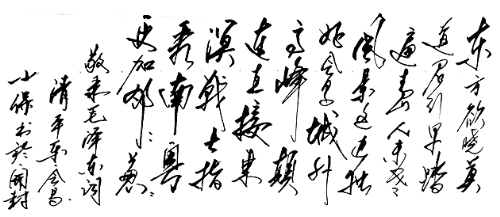 东方欲晓莫
道君行早踏
遍青山人未老
风景这边独
好会昌城外
高峰颠
连直接东
溟战士指
看南粤
更加郁〻葱〻
敬录毛泽东词
清平乐会昌
小保书於开封